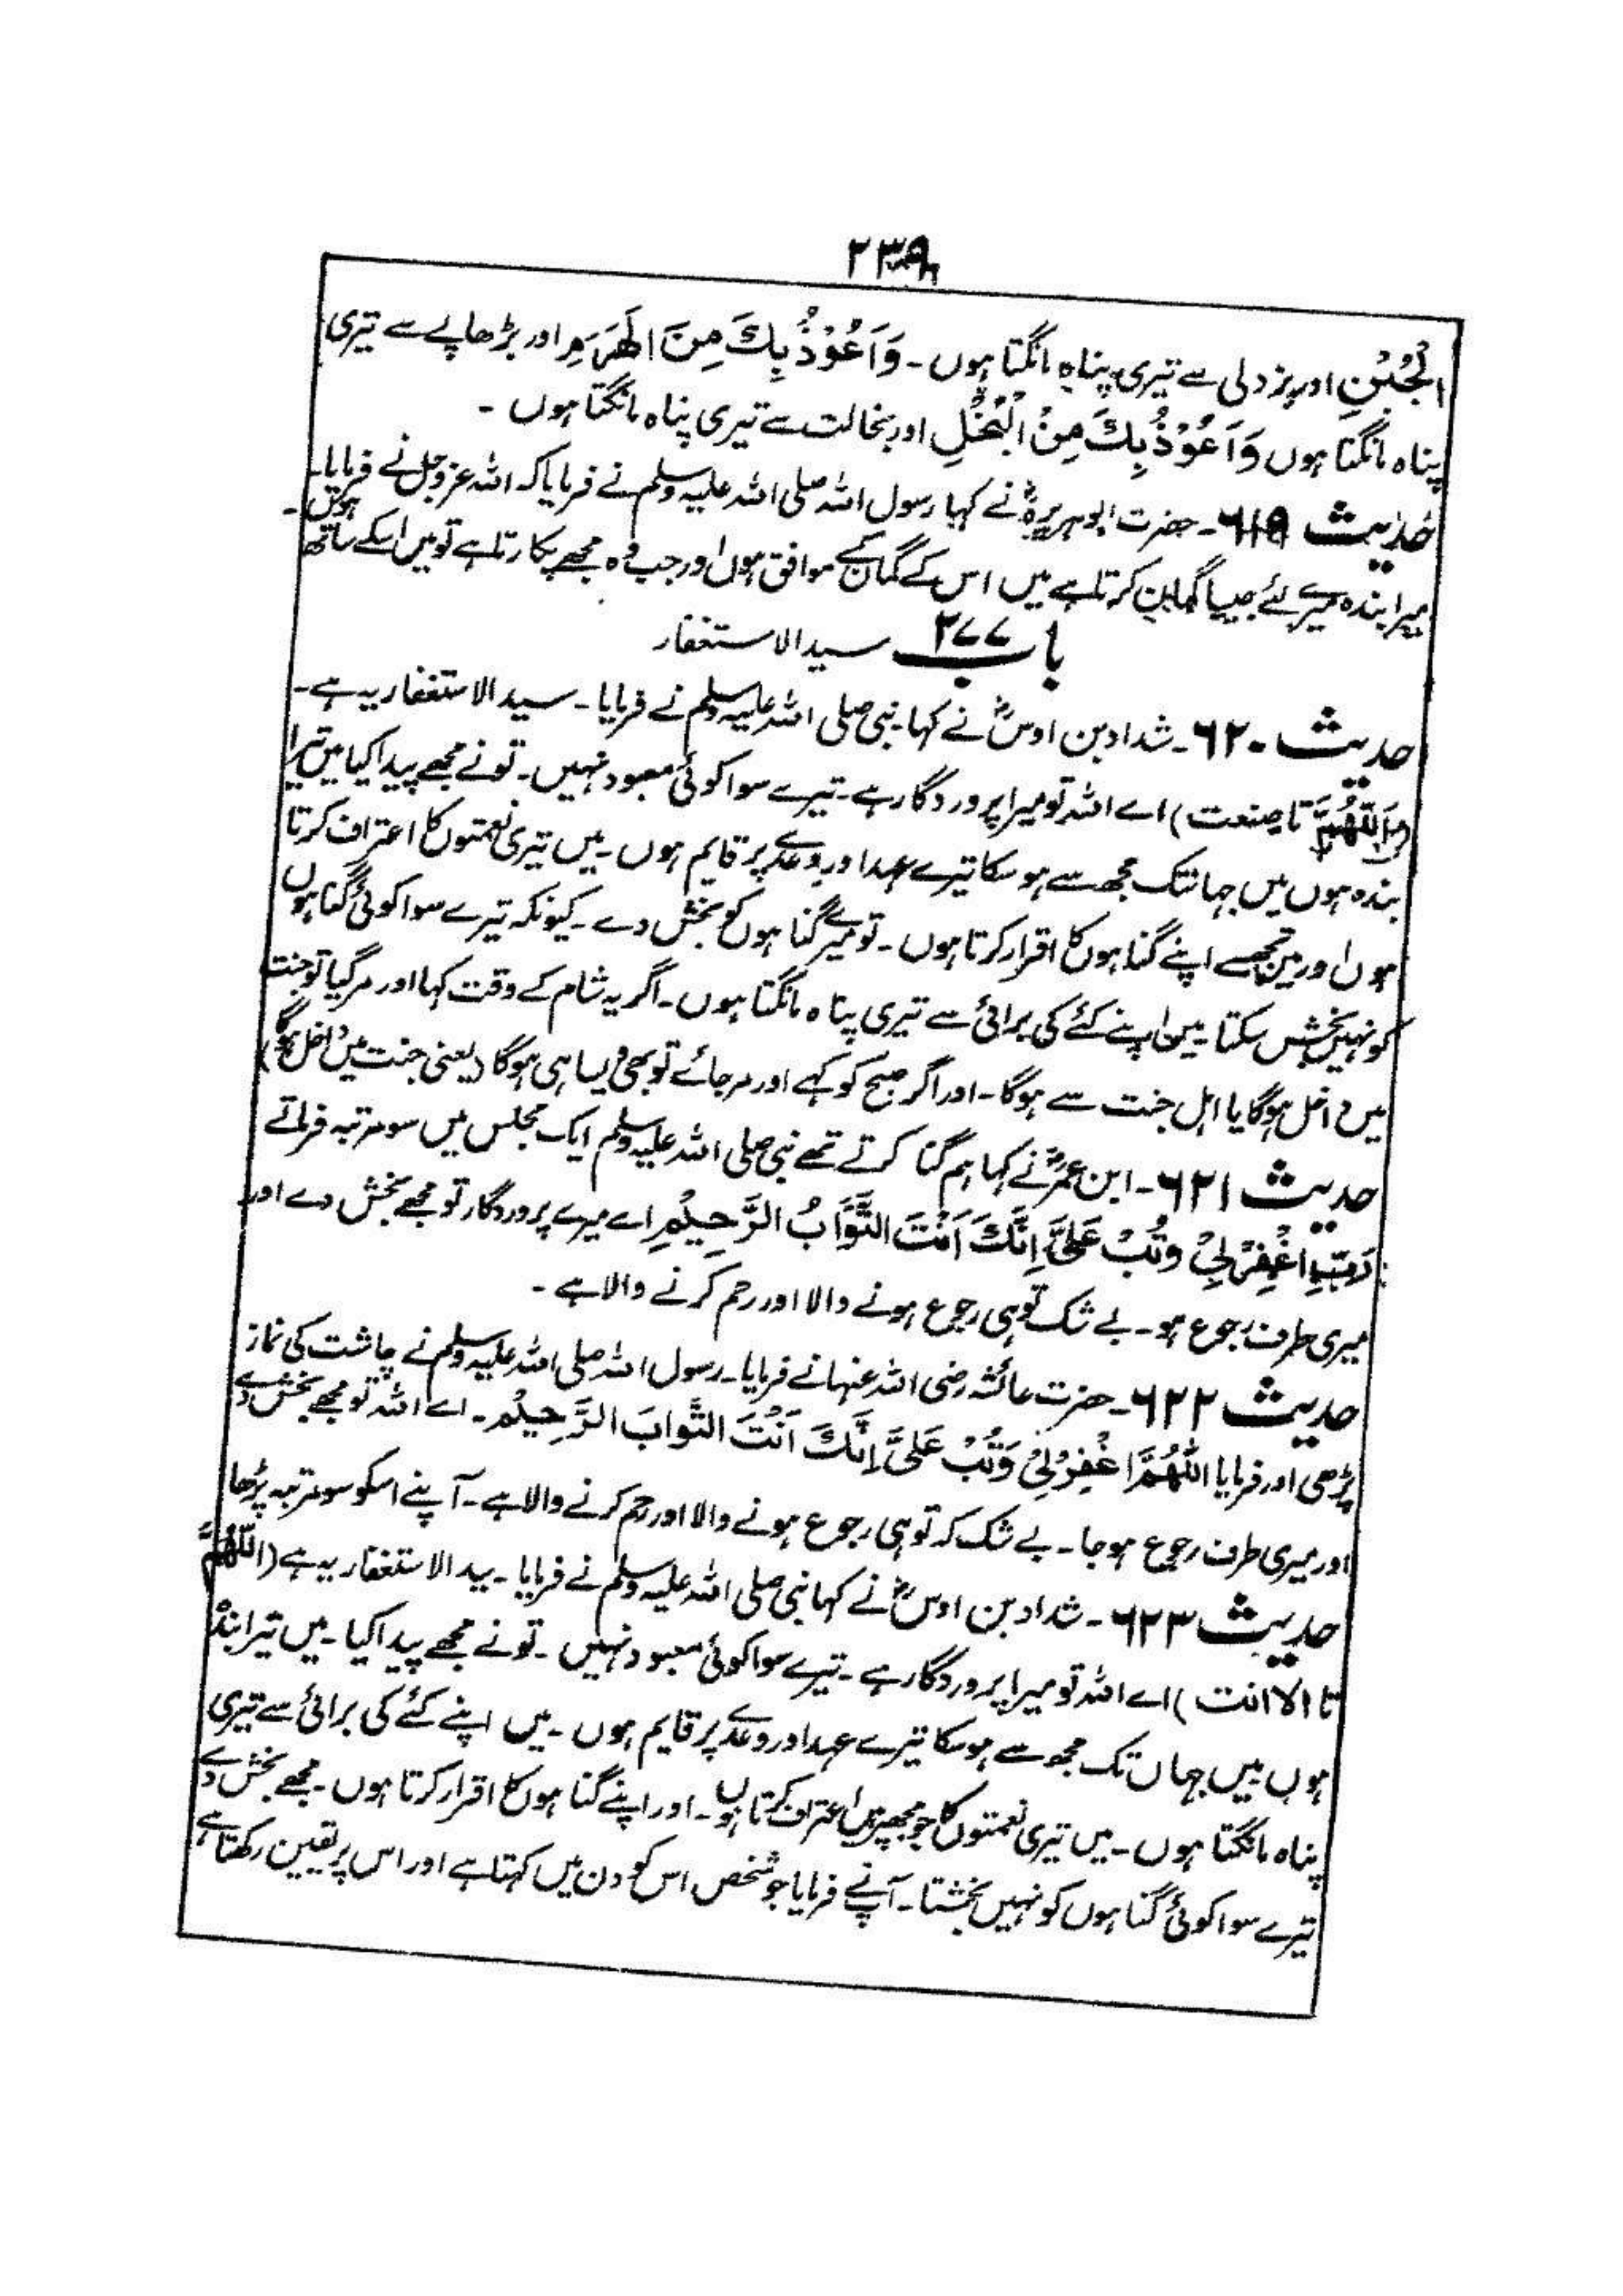 ۲۳۹
الْجُبْنِ اور بزدلی سے تیری پناہ مانگتا ہوں۔ وَاَعُوْذُ بِكَ مِنَ الْهَرَمِ اور بڑھاپے سے تیری
پناہ مانگتا ہوں وَاَعُوْذُ بِكَ مِنْ الْبُخْلِ اور بخالت سے تیری پناہ مانگتا ہوں ۔
حدیث ۶۱۹۔ حضرت ابوہریرہؓ نے کہا رسول اللہ صلی اللہ علیہ وسلم نے فرمایا کہ اللہ عزوجل نے فرمایا۔
میرا بندہ میرے لئے جیسا گمان کرتا ہے میں اس کے گمان کے موافق ہوں اور جب وہ مجھے پکارتا ہے تو میں اسکے ساتھ ہوں۔
باب ۲۷۷ سید الاستغفار
حدیث ۶۲۰۔ شداد بن اوسؓ نے کہا نبی صلی اللہ علیہ وسلم نے فرمایا۔ سید الاستغفار یہ ہے۔
(اَللّٰهُمَّ تا صنعت) اے اللہ تو میرا پروردگار ہے۔ تیرے سوا کوئی معبود نہیں۔ تو نے مجھے پیدا کیا میں تیرا
بندہ ہوں میں جہانتک مجھ سے ہو سکا تیرے عہد اور وعدے پر قایم ہوں۔ میں تیری نعمتوں کا اعتراف کرتا
ہوں اور میں تجھسے اپنے گناہوں کا اقرار کرتا ہوں۔ تو میرے گناہوں کو بخش دے۔ کیونکہ تیرے سوا کوئی گناہوں
کو نہیں بخش سکتا۔ میں اپنے کئے کی برائی سے تیری پناہ مانگتا ہوں۔ اگر یہ شام کے وقت کہا اور مر گیا تو جنت
میں داخل ہوگا یا اہل جنت سے ہوگا۔ اور اگر صبح کو کہے اور مر جائے تو بھی ایسا ہی ہوگا (یعنی جنت میں داخل ہوگا)
حدیث ۶۲۱۔ ابن عمرؓ نے کہا ہم گنا کرتے تھے نبی صلی اللہ علیہ وسلم ایک مجلس میں سو مرتبہ فرماتے
رَبِّ اغْفِرْ لِيْ وتُبْ عَلَيَّ اِنَّكَ اَنْتَ التَّوَّابُ الرَّحِيْمِ اے میرے پروردگار تو مجھے بخش دے اور
میری طرف رجوع ہو۔ بے شک تو ہی رجوع ہونے والا اور رحم کرنے والا ہے ۔
حدیث ۶۲۲۔ حضرت عائشہ رضی اللہ عنہا نے فرمایا۔ رسول اللہ صلی اللہ علیہ وسلم نے چاشت کی نماز
پڑھی اور فرمایا اللّٰهُمَّ اغْفِرْ لِيْ وَتُبْ عَلَيَّ اِنَّكَ اَنْتَ التَّوابَ الرَّحِيْم۔ اے اللہ تو مجھے بخش دے
اور میری طرف رجوع ہوجا۔ بے شک کہ تو ہی رجوع ہونے والا اور رحم کرنے والا ہے۔ آپ نے اسکو سو مرتبہ پڑھا
حدیث ۶۲۳۔ شداد بن اوسؓ نے کہا نبی صلی اللہ علیہ وسلم نے فرمایا۔ سید الاستغفار یہ ہے (اللّٰهُمَّ
تا الا انت) اے اللہ تو میرا پروردگار ہے۔ تیرے سوا کوئی معبود نہیں۔ تو نے مجھے پیدا کیا۔ میں تیرا بندہ
ہوں میں جہاں تک مجھ سے ہو سکا تیرے عہد اور وعدے پر قایم ہوں۔ میں اپنے کئے کی برائی سے تیری
پناہ مانگتا ہوں۔ میں تیری نعمتوں کا جو مجھپر ہیں اعتراف کرتا ہوں۔ اور اپنے گناہوں کا اقرار کرتا ہوں۔ مجھے بخش دے
تیرے سوا کوئی گناہوں کو نہیں بخشتا۔ آپ نے فرمایا جو شخص اس کو دن میں کہتا ہے اور اس پر یقین رکھتا ہے